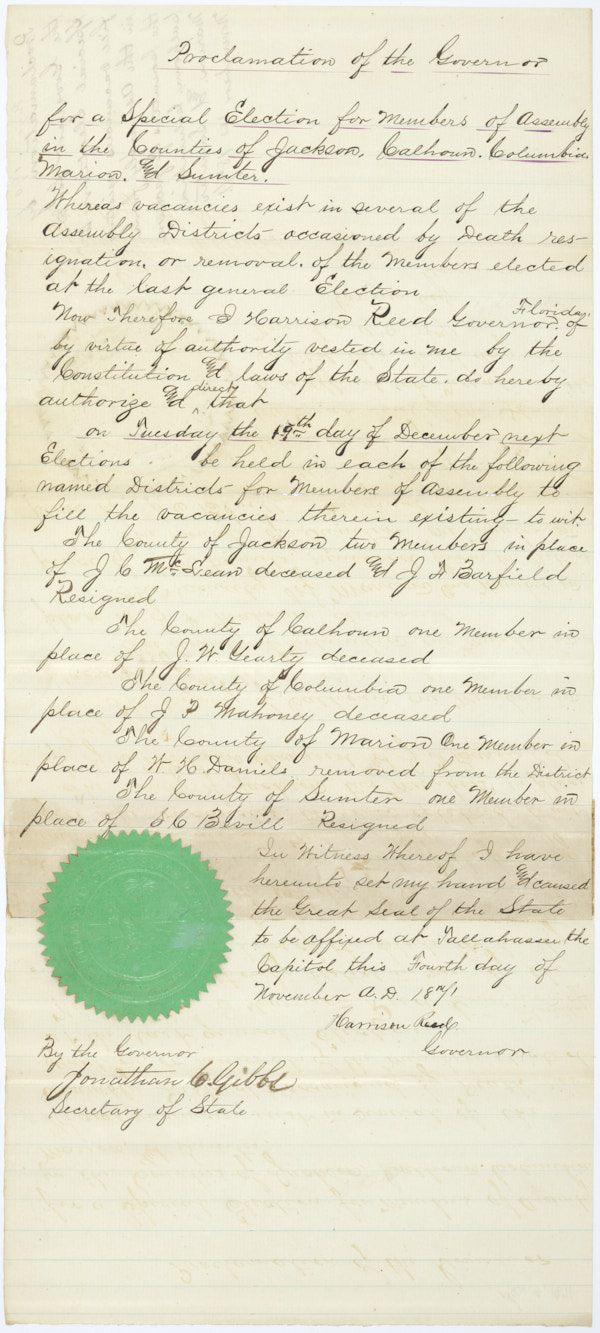 Proclamation of the Governor
for a Special Election for Members of Assembly
in the Counties of Jackson, Calhoun, Columbia,
Marion, and Sumter.
Whereas vacancies exist in several of the
Assembly Districts occasioned by Death res-
ignation, or removal, of the Members elected
at the last general Election
Now Therefore I Harrison Reed Governor, of Florida,
by virtue of authority vested in me by the
Constitution and laws of the State, do hereby
authorize and direct that
on Tuesday the 19th day of December next
Elections be held in each of the following
named Districts for Members of Assembly to
fill the vacancies therein existing - to wit
The County of Jackson two Members in place
of J C McLean deceased and J D Barfield
Resigned
The County of Calhoun one Member in
place of J. W. Yearty deceased
The County of Columbia one Member in
place of J P Mahoney deceased
The County of Marion One Member in
place of W H. Daniels removed from the District
The County of Sumter one Member in
place of E C Bevill Resigned
In Witness Whereof I have
hereunto set my hand and caused
the Great Seal of the State
to be affixed at Tallahassee the
Capitol this Fourth day of
November A.D. 1871
Harrison Reed
Governor
By the Governor
Jonathan C. Gibbs
Secretary of State